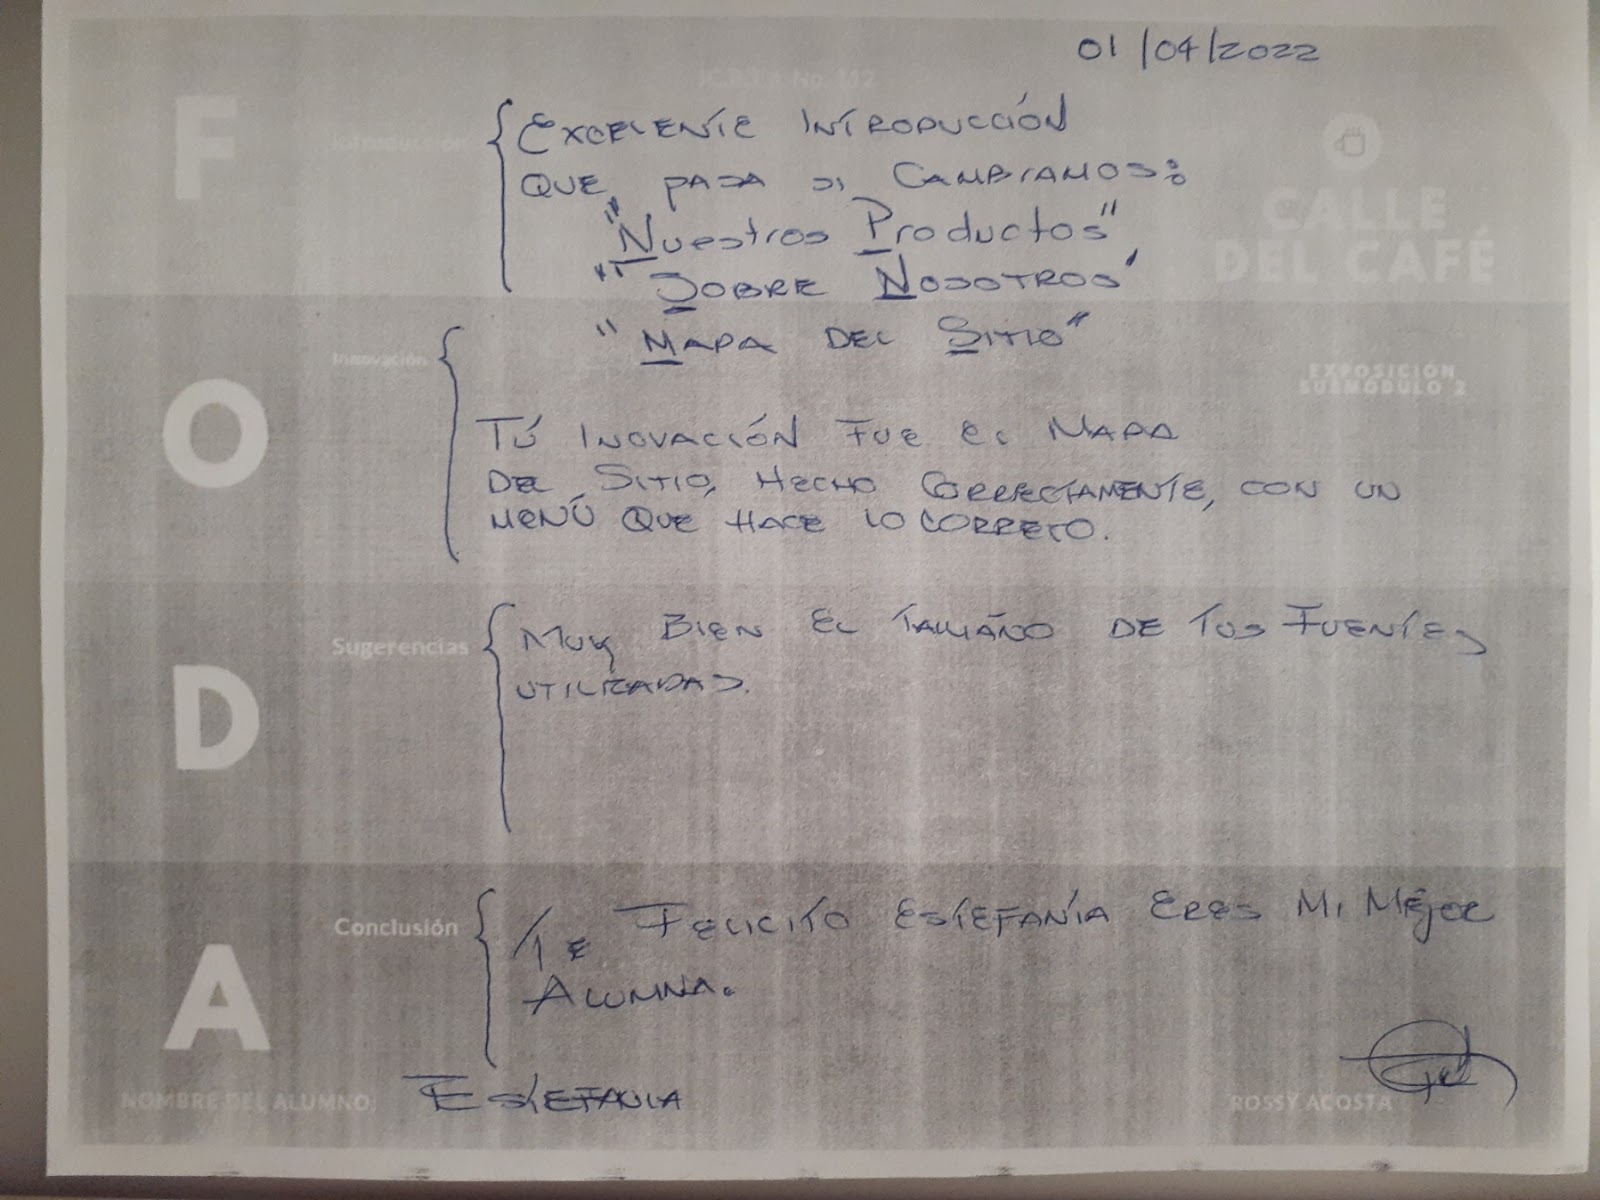 01/04/2022
F
Introducción
EXCELENTE INTRODUCCIÓN
QUE PASA SI CAMBIAMOS:
"Nuestros Productos"
"SOBRE NOSOTROS"
"MAPA DEL SITIO"
CALLE
DEL CAFÉ
O
Innovación
TÚ INOVACIÓN FUE EL MAPA
DEL SITIO, HECHO CORRECTAMENTE, CON UN
MENÚ QUE HACE LO CORRETO.
EXPOSICIÓN
SUBMÓDULO 2
D
Sugerencias
MUY BIEN EL TAMAÑO DE TUS FUENTES
UTILIZADAS.
A
Conclusión
TE FELICITO ESTEFANÍA ERES MI MEJOR
ALUMNA.
NOMBRE DEL ALUMNO:
ESTEFANIA
ROSSY ACOSTA